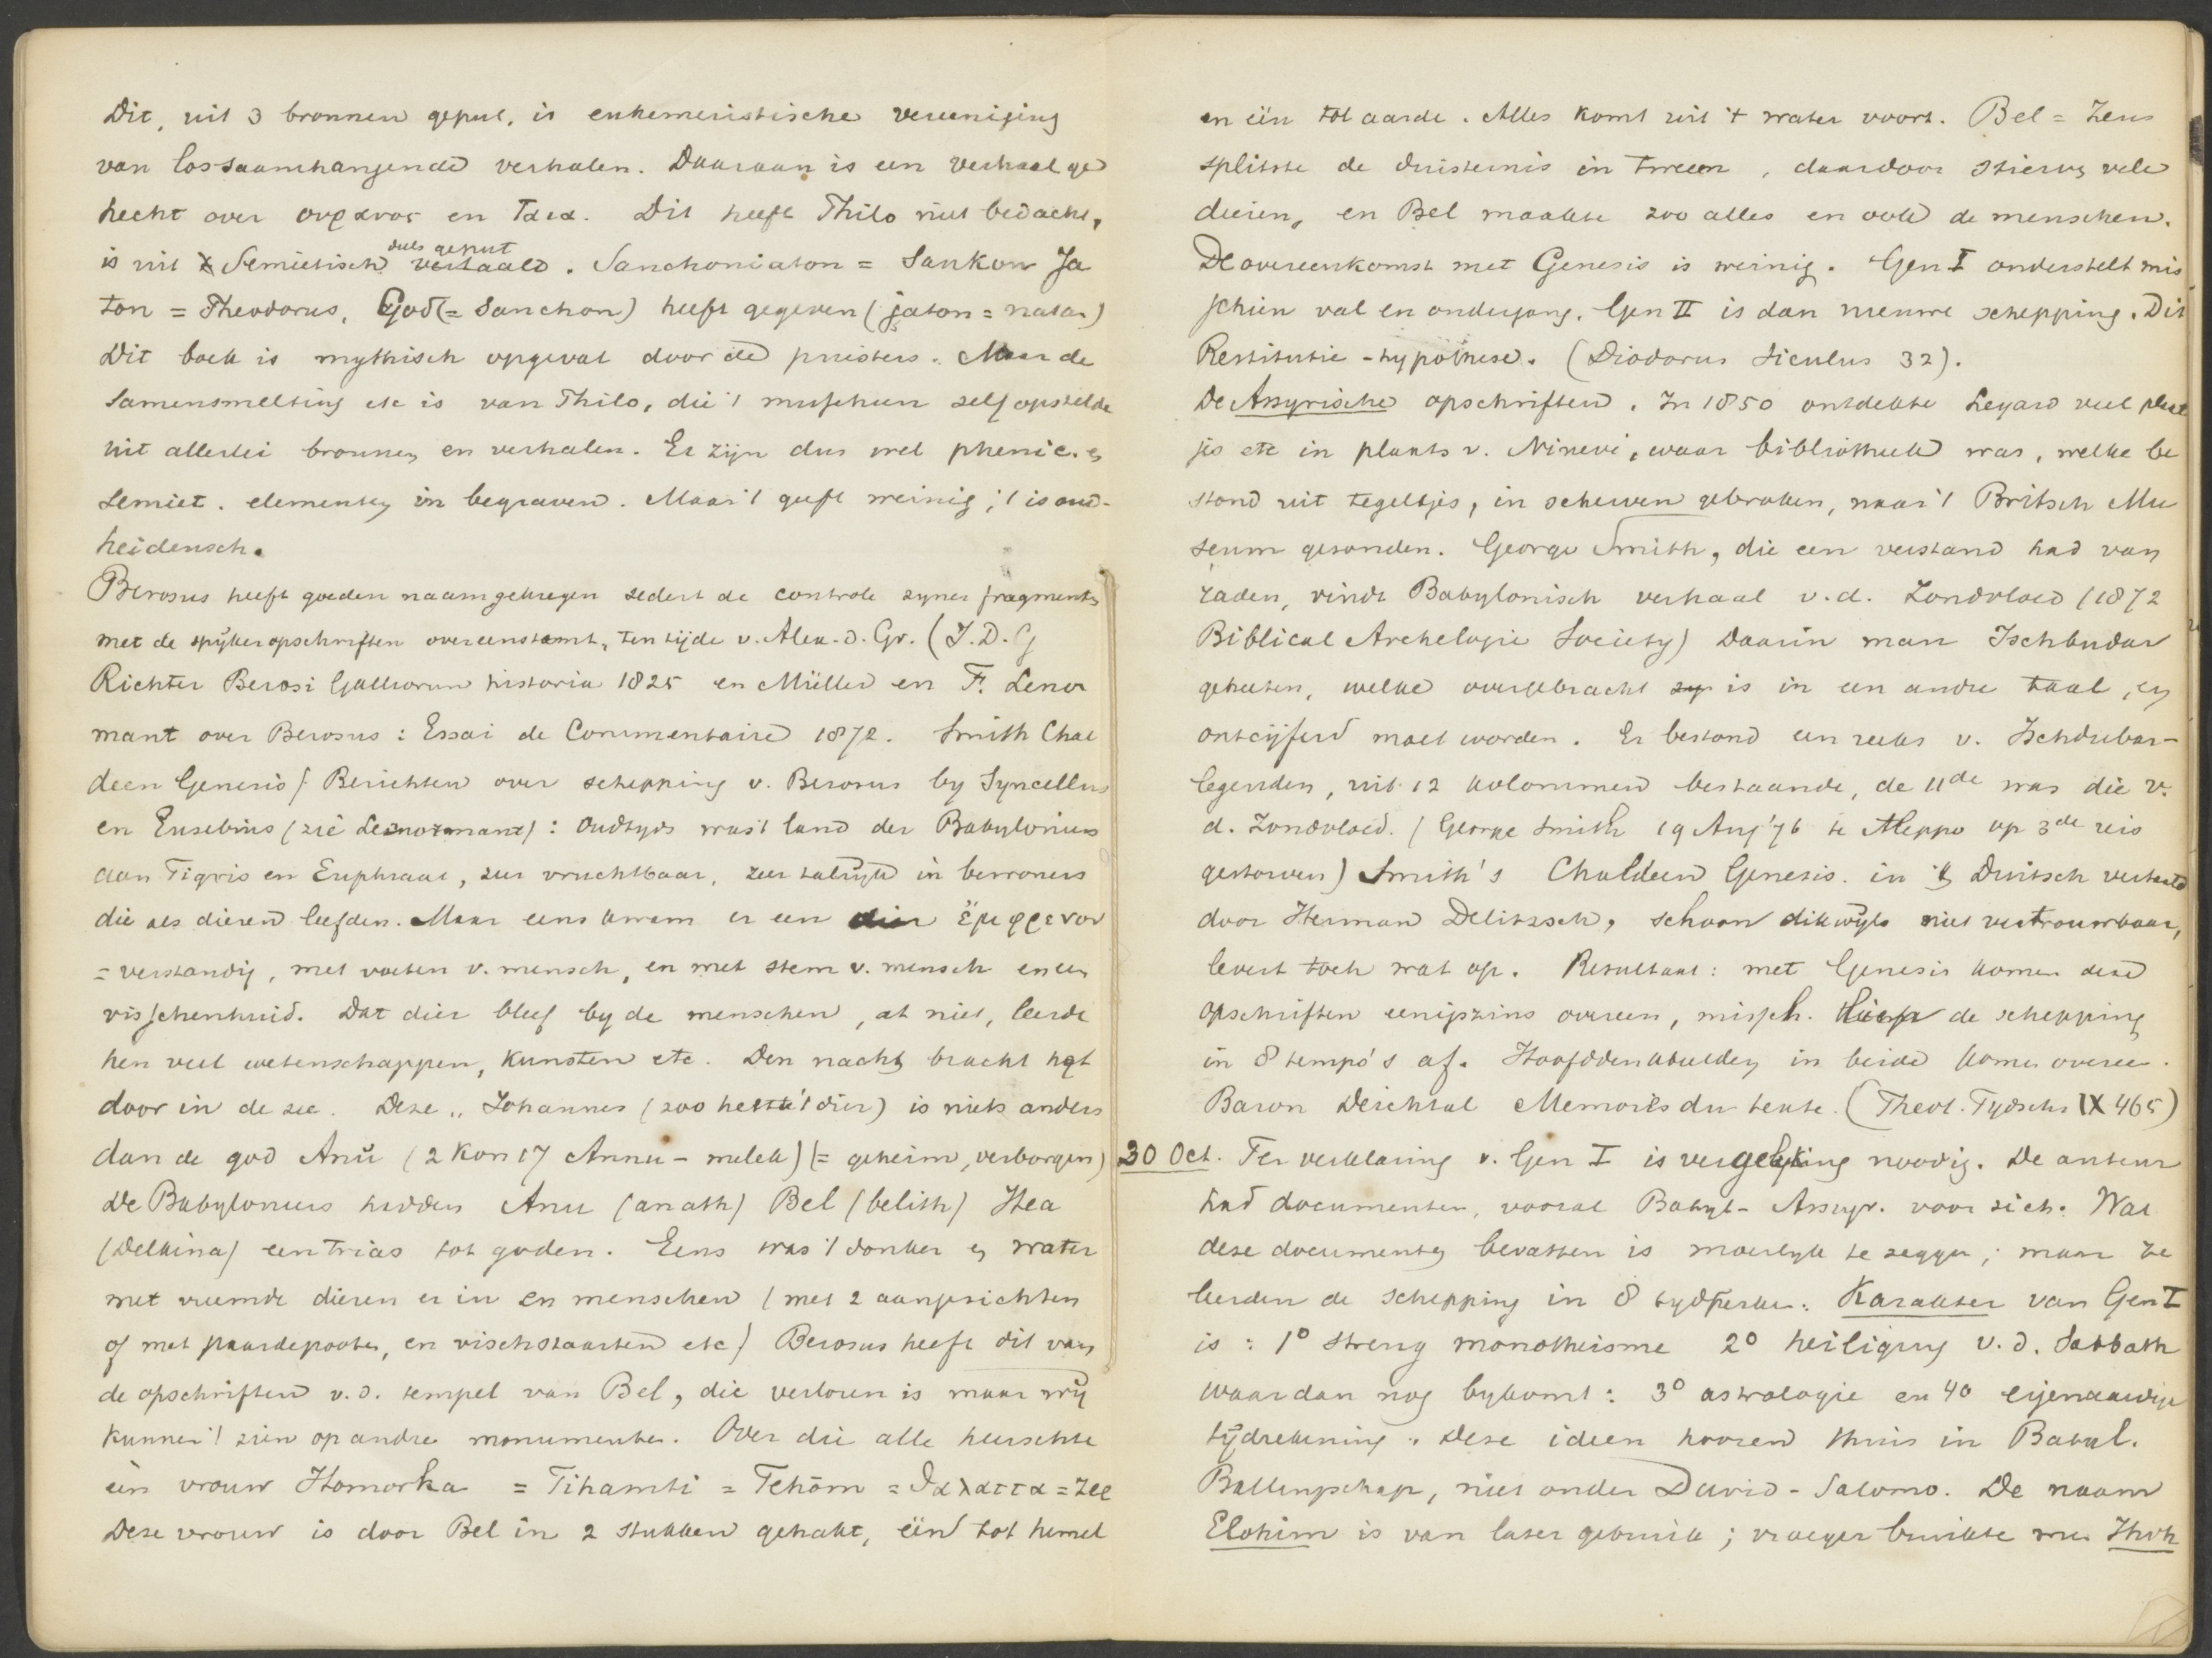 Dit, uit 3 bronnen geput, is euhemeristische vereeniging
van lossaamhangende verhalen. Daaraan is een verhaal ge
hecht over ουρανος en Γαια. Dit heeft Philo niet bedacht,
is uit 't Semietisch deels geput vertaald. Sanchoniaton = Sankon Ja
ton = Theodorus, God (= Sanchon) heeft gegeven (jaton = natan)
Dit boek is mythisch opgevat door de priesters. Maar de
samensmelting etc is van Philo, die 't misschien zelf opstelde
uit allerlei bronnen en verhalen. Er zijn dus wel phenic. en
semiet. elementen in begraven. Maar 't geeft weinig; 't is oud-
heidensch.
Berosus heeft goeden naam gekregen sedert de controle zyner fragmenten
met de spijkeropschriften overeenstemt, ten tijde v. Alex. d. Gr. (J. D. G
Richter Berosi Galliorum historia 1825 en Müller en F. Lenor
mant over Berosus: Essai de Commentaire 1872. Smith Chal
deen Genesis) Berichten over schepping v. Berosus by Syncellus
en Eusebius (zie Lenormant): Oudtyds was 't land der Babyloniers
aan Tigris en Euphraat, zeer vruchtbaar, zeer talrijk in bewoners
die als dieren leefden. Maar eens kwam er een dier ἔμφρενον
= verstandig, met voeten v. mensch, en met stem v. mensch en een
visschenhuid. Dat dier bleef by de menschen, at niet, leerde
hen veel wetenschappen, kunsten etc. Den nacht bracht het
door in de zee. Deze „Johannes (zoo heette 't dier) is niets anders
dan de god Anû (2 Kon 17 Annu-melek) (= geheim, verborgen)
De Babyloniers hadden Anu (anath) Bel (belith) Hea
(Delkina) een trias tot goden. Eens was 't donker en water
met vreemde dieren er in en menschen (met 2 aangezichten
of met paardepooten, en vischstaarten etc) Berosus heeft dit van
de opschriften v. d. tempel van Bel, die verloren is maar wij
kunnen 't zien op andre monumenten. Over die alle heerschte
één vrouw Homorka = Tihamti = Tehôm = θαλαττα = zee
Deze vrouw is door Bel in 2 stukken gehakt, één tot hemel
en één tot aarde. Alles komt uit 't water voort. Bel = Zeus
splitste de duisternis in tweeen, daardoor stierven vele
dieren, en Bel maakte zoo alles en ook de menschen.
De overeenkomst met Genesis is weinig. Gen I onderstelt mis
schien val en ondergang. Gen II is dan nieuwe schepping. Dit
Restitutie-hypothese. (Diodorus Siculus 32).
De Assyrische opschriften. In 1850 ontdekte Leyard veel plaat
jes etc in plaats v. Ninevé, waar bibliotheek was, welke be
stond uit tegeltjes, in scherven gebroken, naar 't Britsch Mu
seum gezonden. George Smith, die een verstand had van
raden, vindt Babylonisch verhaal v. d. Zondvloed (1872
Biblical Archelogie Society) Daarin man Ischbudar
geheeten, welke overgebracht is in een andre taal, en
ontcijferd moet worden. Er bestond een reeks v. Ischdubar-
legenden, uit 12 kolommen bestaande, de 11de was die v.
d. Zondvloed. (George Smith 19 Aug '76 te Aleppo op 3de reis
gestorven) Smith's Chaldeen Genesis. in 't Duitsch vertaald
door Herman Delitzsch, schoon dikwijls niet vertrouwbaar,
levert toch wat op. Resultaat: met Genesis komen deze
opschriften eenigszins overeen, missch. de schepping
in 8 tempo's af. Hoofddenkbeelden in beide komen overee.
Baron Deichtal Memoires du texte. (Theol. Tydschr IX 465)
30 Oct. Ter verklaring v. Gen I is vergelyking noodig. De auteur
had documenten, vooral Babyl-Assyr. voor zich. Wat
deze documenten bevatten is moeilyk te zeggen; maar ze
leerden de schepping in 8 tydperken. Karakter van Gen I
is: 1° streng monotheisme 2° heiliging v. d. Sabbath
waar dan nog bykomt: 3° astrologie en 4° eigenaardige
tijdrekening. Deze ideen hooren thuis in Babyl.
Ballingschap, niet onder David-Salomo. De naam
Elohim is van later gebruik; vroeger bruikte men Jhvh